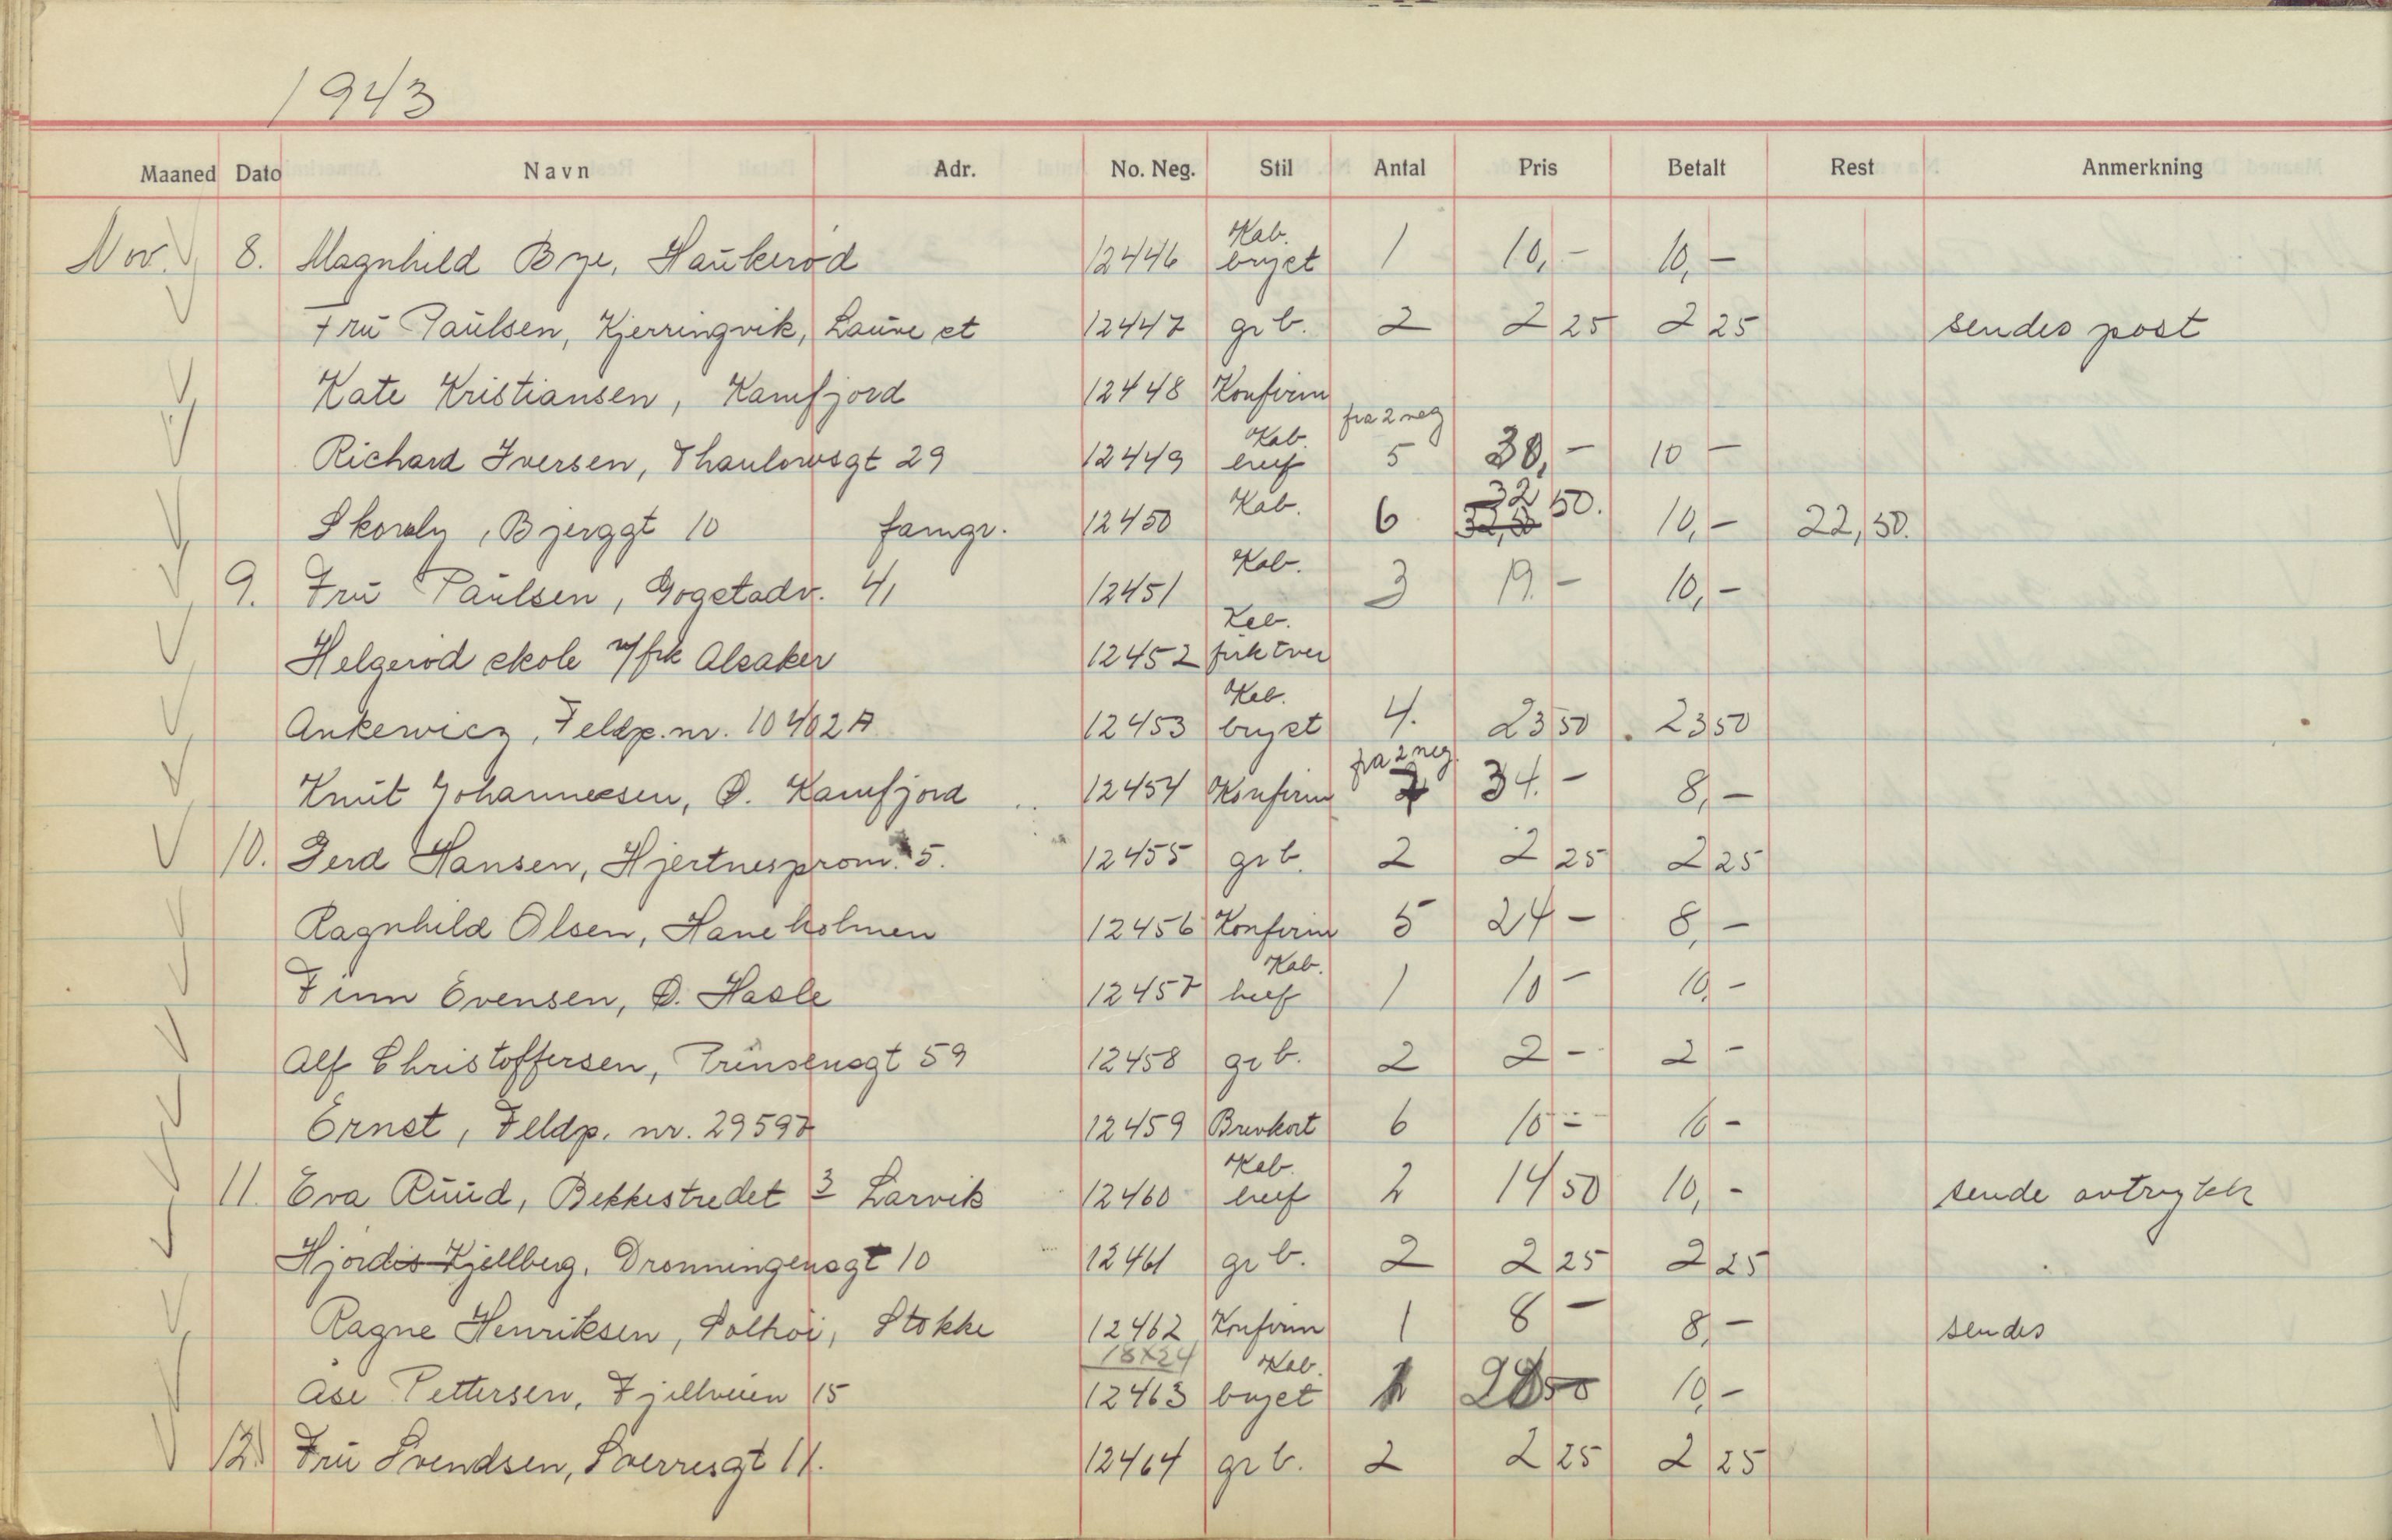 1943
Maaned Dato Navn Adr. No. Neg. Stil Antal Pris Betalt Rest Anmerkning
Nov. 8. Magnhild Bye, Haukerød 12446 Kab. bryst 1 10,- 10,-
Fru Paulsen, Kjerringvik, 12447 gr b. 2 2 25 2 25 sendes post
Kate Kristiansen, Kamfjord 12448 Konfirm
Richard Iversen, Thaulowsgt 29 12449 Kab. fra 2 neg 5 30,- 10 -
Bjerggt 10 famgr. 12450 Kab. 6 32 50. 10,- 22,50.
9. Fru Paulsen, Gogstadv. 41 12451 Kab. 3 19.- 10,-
Helgerød skole v/frk Alsaker 12452 Kab.
Ankewicz, Feldp. nr. 10402A 12453 Kab. bryst 4. 23 50 23 50
Knut Johannessen, Ø. Kamfjord 12454 Konfirm fra 2 neg. 7 34.- 8,-
10. Gerd Hansen, Hjertnesprom. 5. 12455 gr b. 2 2 25 2 25
Ragnhild Olsen, Haneholmen 12456 Konfirm 5 24 - 8,-
Finn Evensen, Ø. Hasle 12457 Kab. 1 10 - 10,-
Alf Christoffersen, Prinsensgt 59 12458 gr b. 2 2 - 2 -
Ernst, Feldp. nr. 29597 12459 Brevkort 6 10 - 10 -
11. Eva Ruud, Bekkestredet 3 Larvik 12460 Kab. 2 14 50 10,- sende avtrykk
Hjørdis Kjellberg, Dronningensgt 10 12461 gr b. 2 2 25 2 25
Ragne Henriksen, Solhøi, Stokke 12462 Konfirm 1 8 - 8,- sendes
18x24
Åse Pettersen, Fjellveien 15 12463 Kab. bryst 10,-
12. Fru Svendsen, Sverresgt 11. 12464 gr b. 2 2 25 2 25